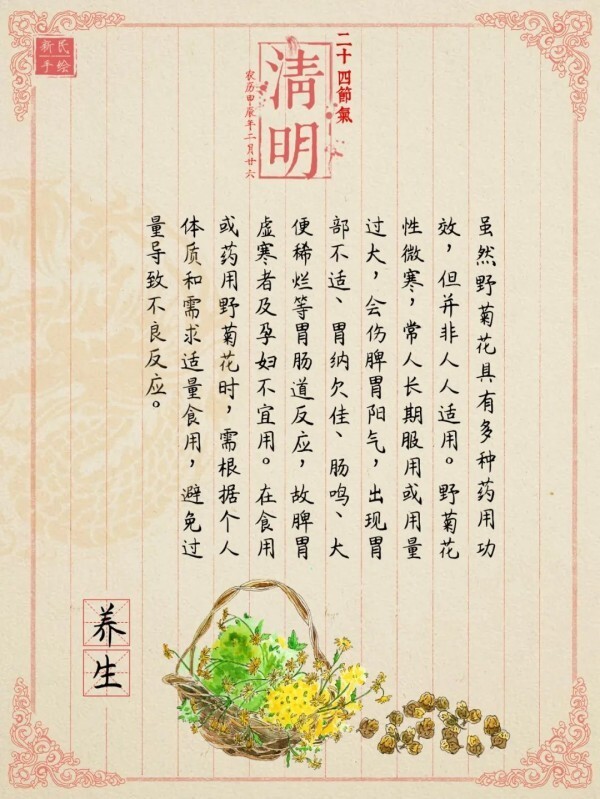 新民
手绘
二十四節氣
清明
农历甲辰年二月廿六
虽然野菊花具有多种药用功
效，但并非人人适用。野菊花
性微寒，常人长期服用或用量
过大，会伤脾胃阳气，出现胃
部不适、胃纳欠佳、肠鸣、大
便稀烂等胃肠道反应，故脾胃
虚寒者及孕妇不宜用。在食用
或药用野菊花时，需根据个人
体质和需求适量食用，避免过
量导致不良反应。
养生